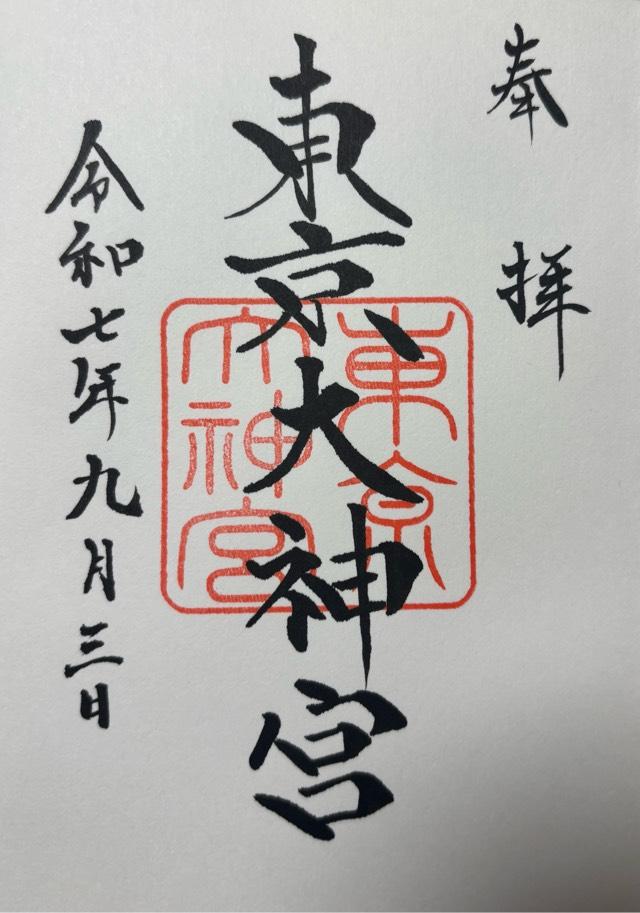 奉拝
東京大神宮
東京
大神宮
令和七年九月三日